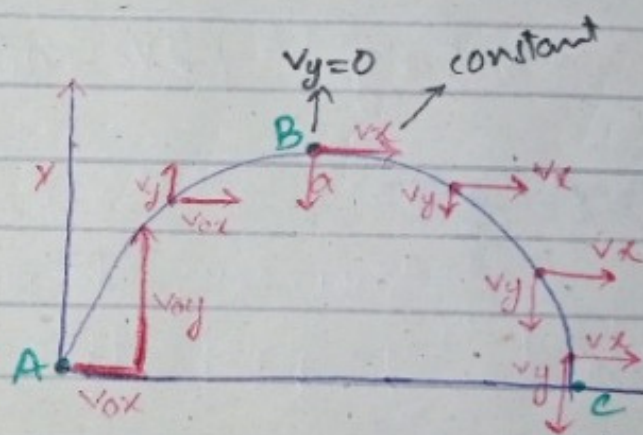 Vy=0
constant
B
Vx
Y
Vy
Vox
a
Vy
Vx
Voy
Vy
Vx
A
Vox
Vy
Vx
C